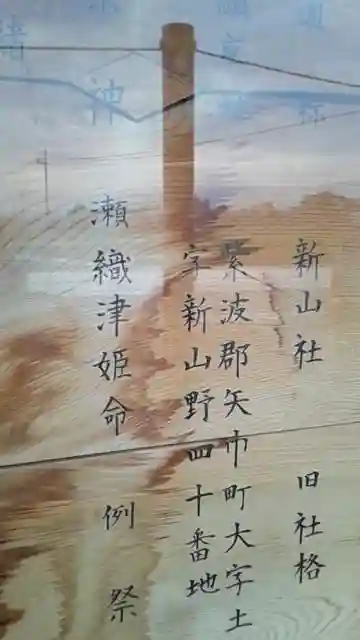 新山社 旧社格
紫波郡矢巾町大字土
字新山野四十番地
神 瀬織津姫命 例祭